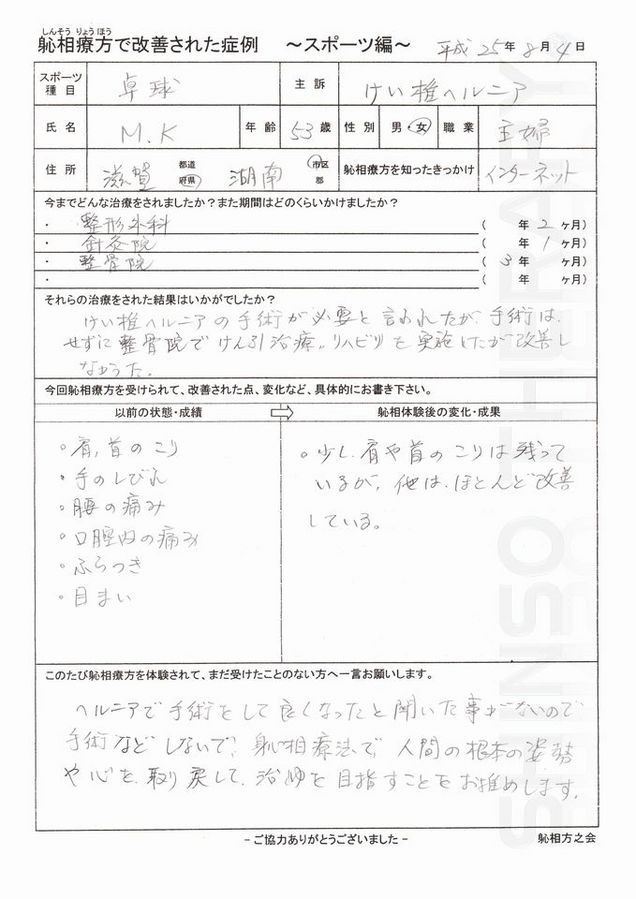 しんそう りょうほう
躰相療方で改善された症例 ～スポーツ編～ 平成25年8月4日
スポーツ種目 卓球 主訴 けい椎ヘルニア
氏名 M.K 年齢 53歳 性別 男・女 職業 主婦
住所 滋賀 都道府県 湖南 市区郡 躰相療方を知ったきっかけ インターネット
今までどんな治療をされましたか？また期間はどのくらいかけましたか？
・ 整形外科 ( 年 2 ヶ月)
・ 針灸院 ( 年 1 ヶ月)
・ 整骨院 ( 3 年 ヶ月)
・ ( 年 ヶ月)
それらの治療をされた結果はいかがでしたか？
けい椎ヘルニアの手術が必要と言われたが、手術は、
せずに整骨院でけん引治療。リハビリを実施したが改善し
なかった。
今回躰相療方を受けられて、改善された点、変化など、具体的にお書き下さい。
以前の状態・成績 ⇨ 躰相体験後の変化・成果
・肩,首のこり
・手のしびれ
・腰の痛み
・口腔内の痛み
・ふらつき
・目まい
・少し、肩や首のこりは残って
いるが、他は、ほとんど改善
している。
このたび躰相療方を体験されて、まだ受けたことのない方へ一言お願いします。
ヘルニアで手術をして良くなったと聞いた事がないので
手術などしないで、躰相療法で、人間の根本の姿勢
や心を、取り戻して、治ゆを目指すことをお推めします。
- ご協力ありがとうございました - 躰相方之会
SHINSO THERAPY